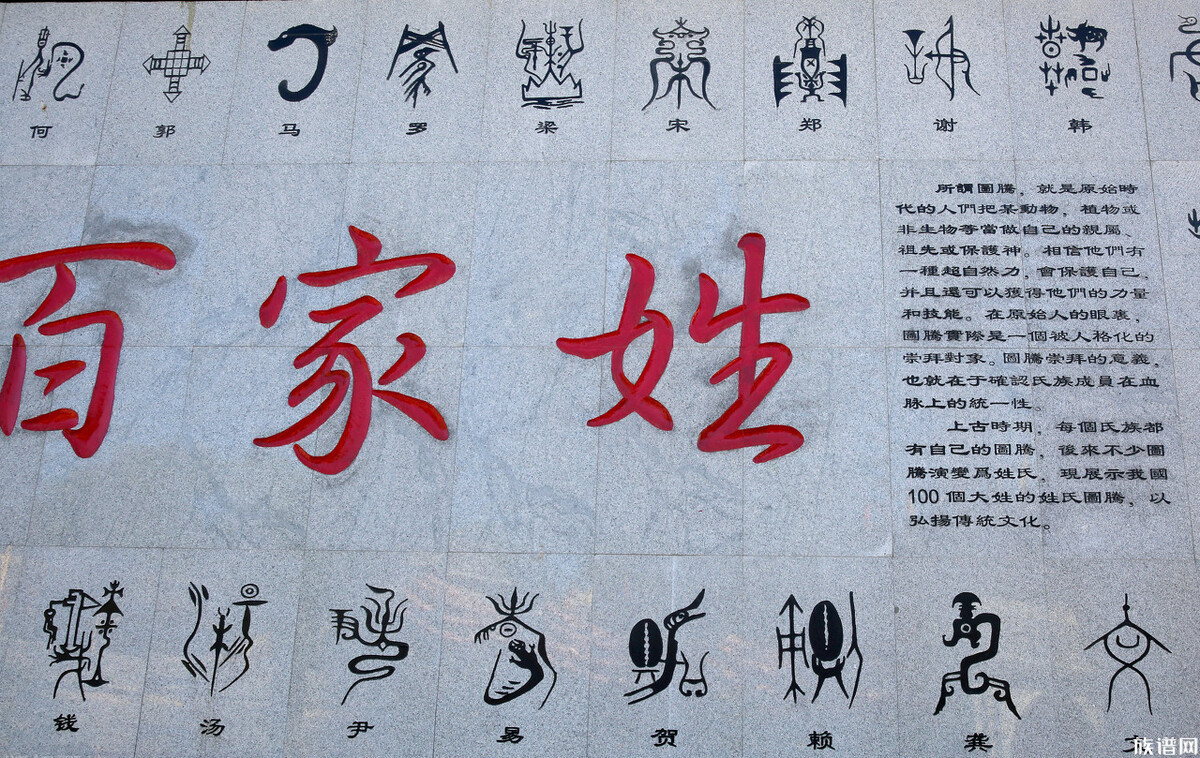 何 郭 马 罗 梁 宋 郑 谢 韩
百家姓
所謂圖騰，就是原始時
代的人們把某動物，植物或
非生物等當做自己的親屬、
祖先或保護神。相信他們有
一種超自然力，會保護自己，
并且還可以獲得他們的力量
和技能。在原始人的眼裏，
圖騰實際是一個被人格化的
崇拜對象。圖騰崇拜的意義，
也就在于確認氏族成員在血
脉上的統一性。
上古時期，每個氏族都
有自己的圖騰，後來不少圖
騰演變爲姓氏，現展示我國
100個大姓的姓氏圖騰，以
弘揚傳統文化。
钱 汤 尹 易 贺 赖 龚 文
族谱网